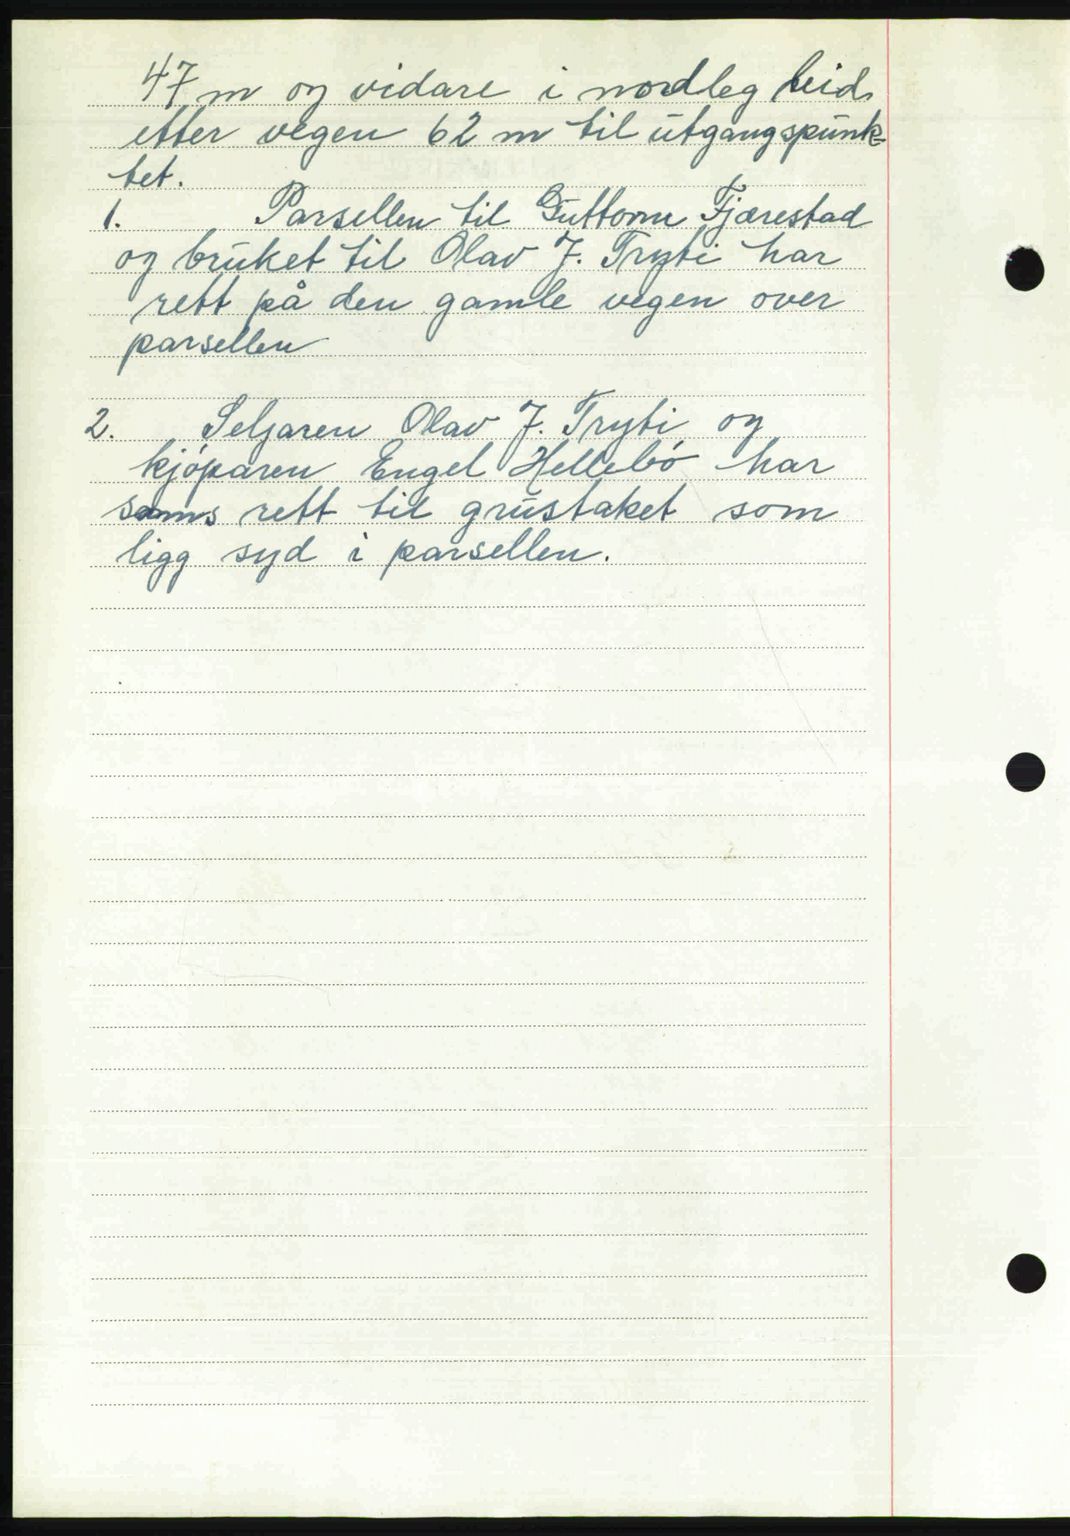 47 m og vidare i nordleg leid
etter vegen 62 m til utgangspunk-
tet.
1. Parsellen til Guttorm Fjærestad
og bruket til Olav J. Tryti har
rett på den gamle vegen over
parsellen
2. Seljaren Olav J. Tryti og
kjøparen Engel Hellebø har
sams rett til grustaket som
ligg syd i parsellen.